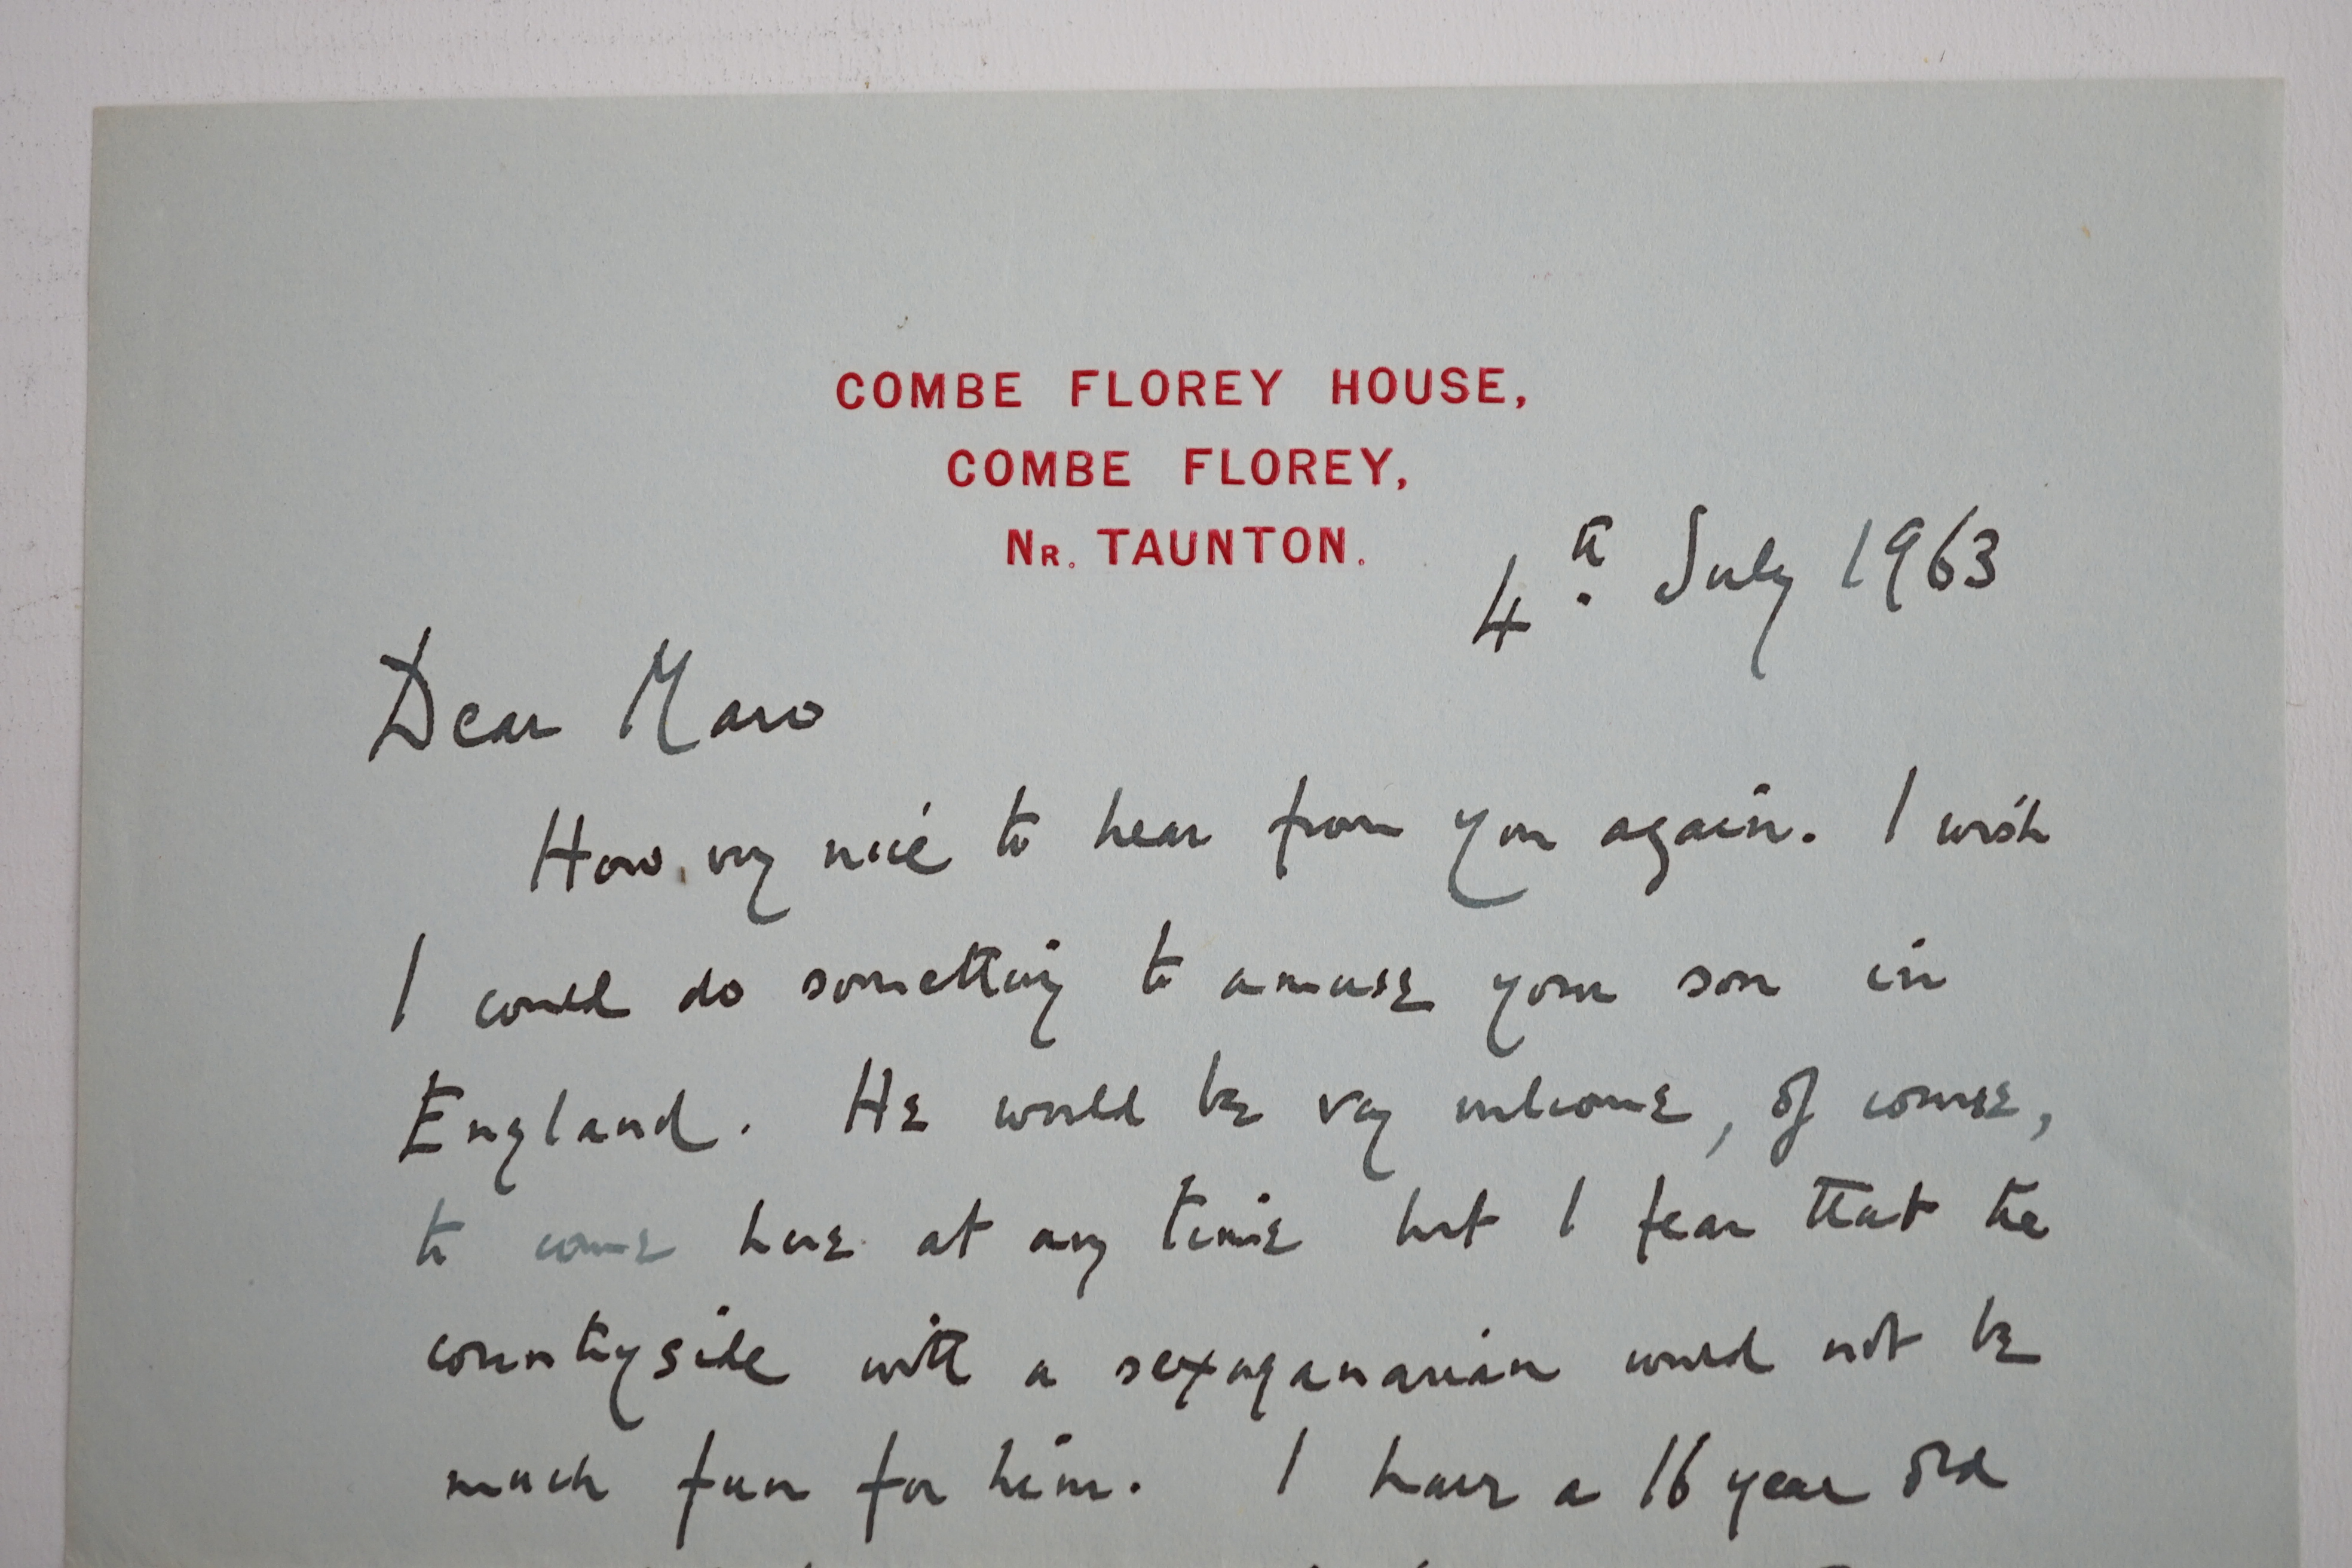 COMBE FLOREY HOUSE,
COMBE FLOREY,
NR. TAUNTON.
4th July 1963
Dear Maro
How very nice to hear from you again. I wish
I could do something to amuse your son in
England. He would be very welcome, of course,
to come here at any time but I fear that the
countryside with a sexaganarian would not be
much fun for him. I have a 16 year old